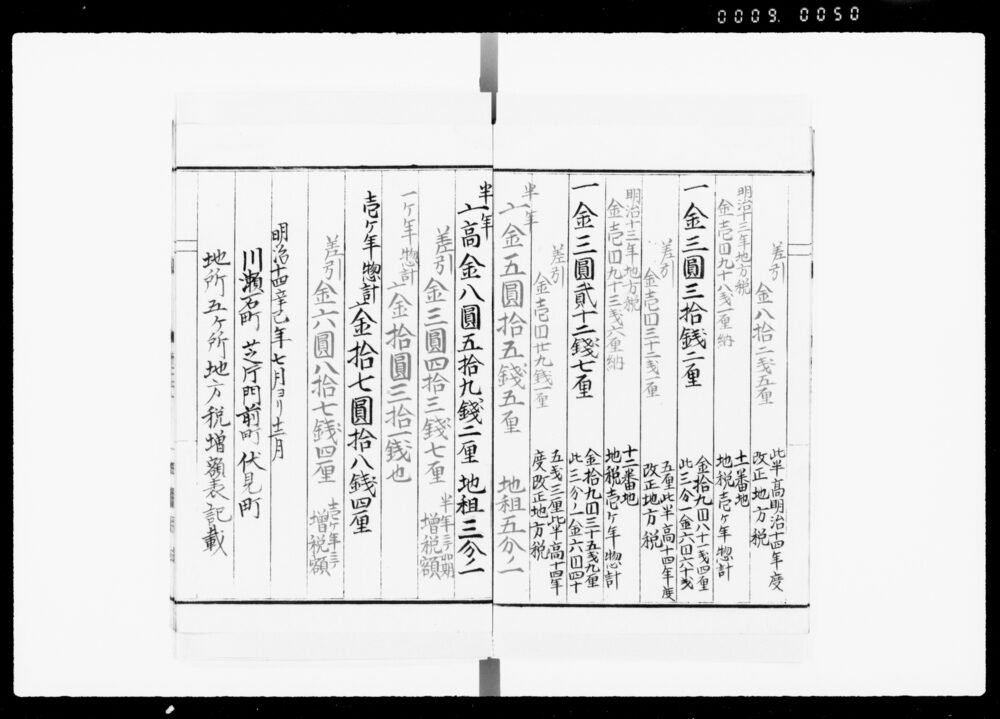 0009. 0050
差引 金八拾二戋五厘
此半高明治十四年度
改正地方税
明治十三年地方税
金壱円四九十八戋一厘納
十一番地
地税壱ケ年惣計
一金三圓三拾銭二厘
金拾九円八十一戋四厘
此三分一金六円六十戋
差引 金壱円三十二戋一厘
五厘此半高十四年度
改正地方税
明治十三年地方税
金壱円九十三戋六厘納
十二番地
地税壱ケ年惣計
一金三圓貳十二錢七厘
金拾九円三十五戋九厘
此三分ノ一金六円四十
差引 金壱円廿九錢一厘
五戋三厘此半高十四年
度改正地方税
半年
一金五圓拾五錢五厘 地租五分ノ一
半年
一高金八圓五拾九錢二厘 地租三分ノ一
差引 金三圓四拾三錢七厘 半年 増税額
一ケ年惣計 一金拾圓三拾一銭也
壱ケ年惣計 一金拾七圓拾八錢四厘
差引 金六圓八拾七錢四厘 壱ケ年 増税額
明治十四辛巳年七月ヨリ十二月
川瀬石町 芝片門前町 伏見町
地所五ケ所地方税増額表記載